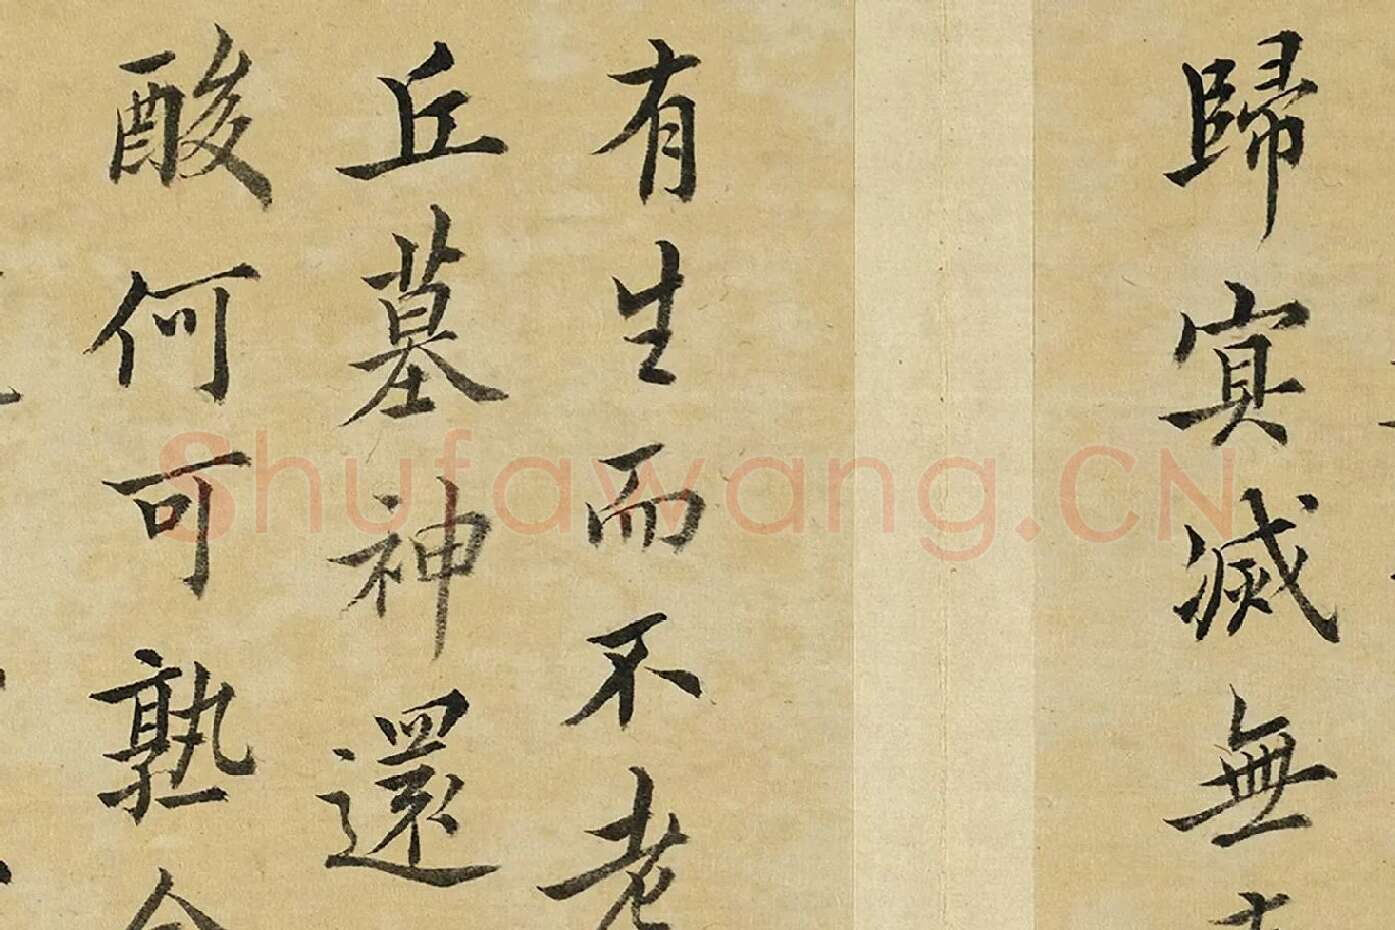 歸寘滅無
有生而不老
丘墓神還
酸何可孰
Shufawang.CN